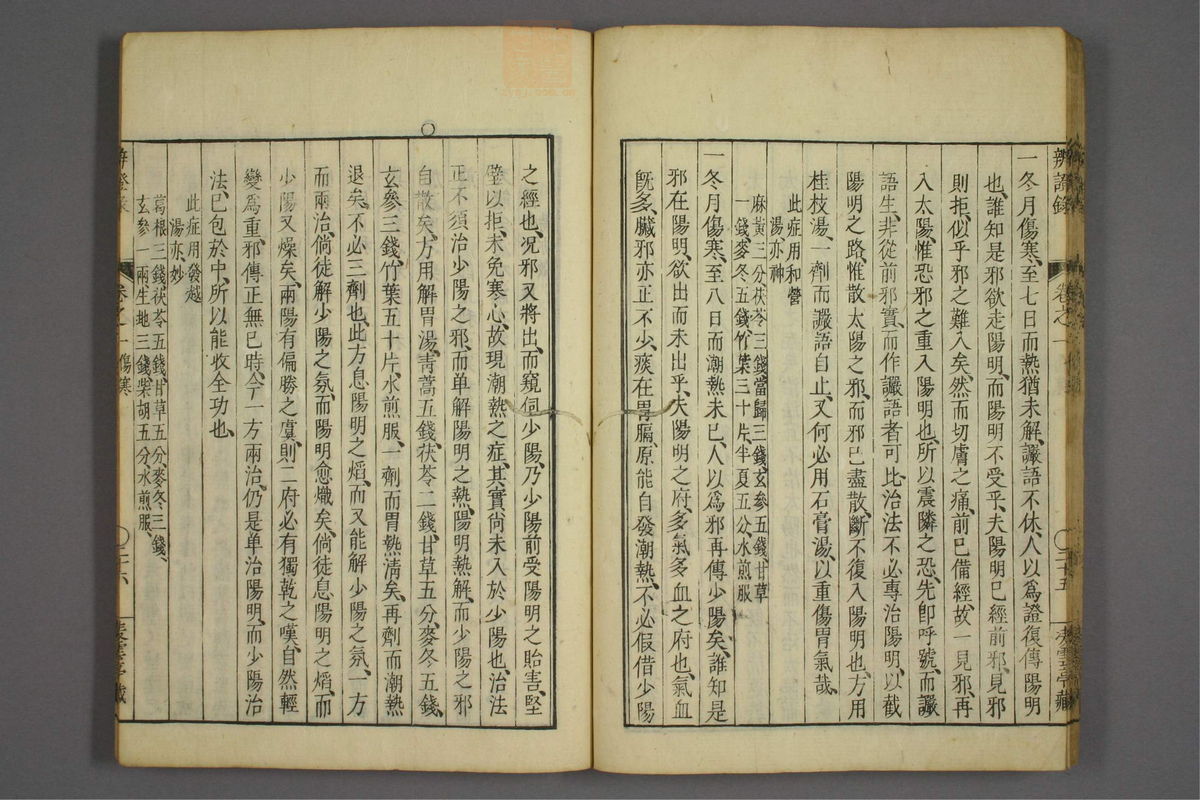 辨證錄 卷之一 二十五
一冬月傷寒、至七日而熱猶未解、讝語不休、人以爲證復傳陽明
也、誰知是邪欲走陽明、而陽明不受乎、夫陽明已經前邪、見邪
則拒、似乎邪之難入矣、然而切膚之痛、前已備經、故一見邪、再
入太陽、惟恐邪之重入陽明也、所以震隣之恐、先卽呼號、而讝
語生、非從前邪實、而作讝語者可比、治法不必專治陽明、以截
陽明之路、惟散太陽之邪、而邪已盡散、斷不復入陽明也、方用
桂枝湯、一劑而讝語自止、又何必用石膏湯、以重傷胃氣哉、
此症用和營
湯亦神
麻黃三分茯苓三錢當歸三錢玄參五錢甘草
一錢、麥冬五錢、竹葉三十片、半夏五分、水煎服
一冬月傷寒、至八日而潮熱未已、人以爲邪再傳少陽矣、誰知是
邪在陽明、欲出而未出乎、夫陽明之府、多氣多血之府也、氣血
旣多、臟邪亦正不少、痰在胃膈、原能自發潮熱、不必假借少陽
之經也、况邪又將出、而窺伺少陽、乃少陽前受陽明之貽害、堅
壁以拒、未免寒心、故現潮熱之症、其實尙未入於少陽也、治法
正不須治少陽之邪、而单解陽明之熱、陽明熱解、而少陽之邪
自散矣、方用解胃湯、靑蒿五錢、茯苓二錢、甘草五分、麥冬五錢、
玄參三錢、竹葉五十片、水煎服、一劑而胃熱淸矣、再劑而潮熱
退矣、不必三劑也、此方息陽明之熖、而又能解少陽之氛、一方
而兩治、倘徒解少陽之氛、而陽明愈熾矣、倘徒息陽明之熖、而
少陽又燥矣、兩陽有偏勝之虞、則二府必有獨乾之嘆、自然輕
變爲重、邪傳正無已時、今一方兩治、仍是单治陽明、而少陽治
法、已包於中、所以能收全功也、
此症用發越
湯亦妙
葛根三錢茯苓五錢甘草五分、麥冬三錢、
玄參一兩生地三錢柴胡五分水煎服、
卷之一 傷寒 二十六